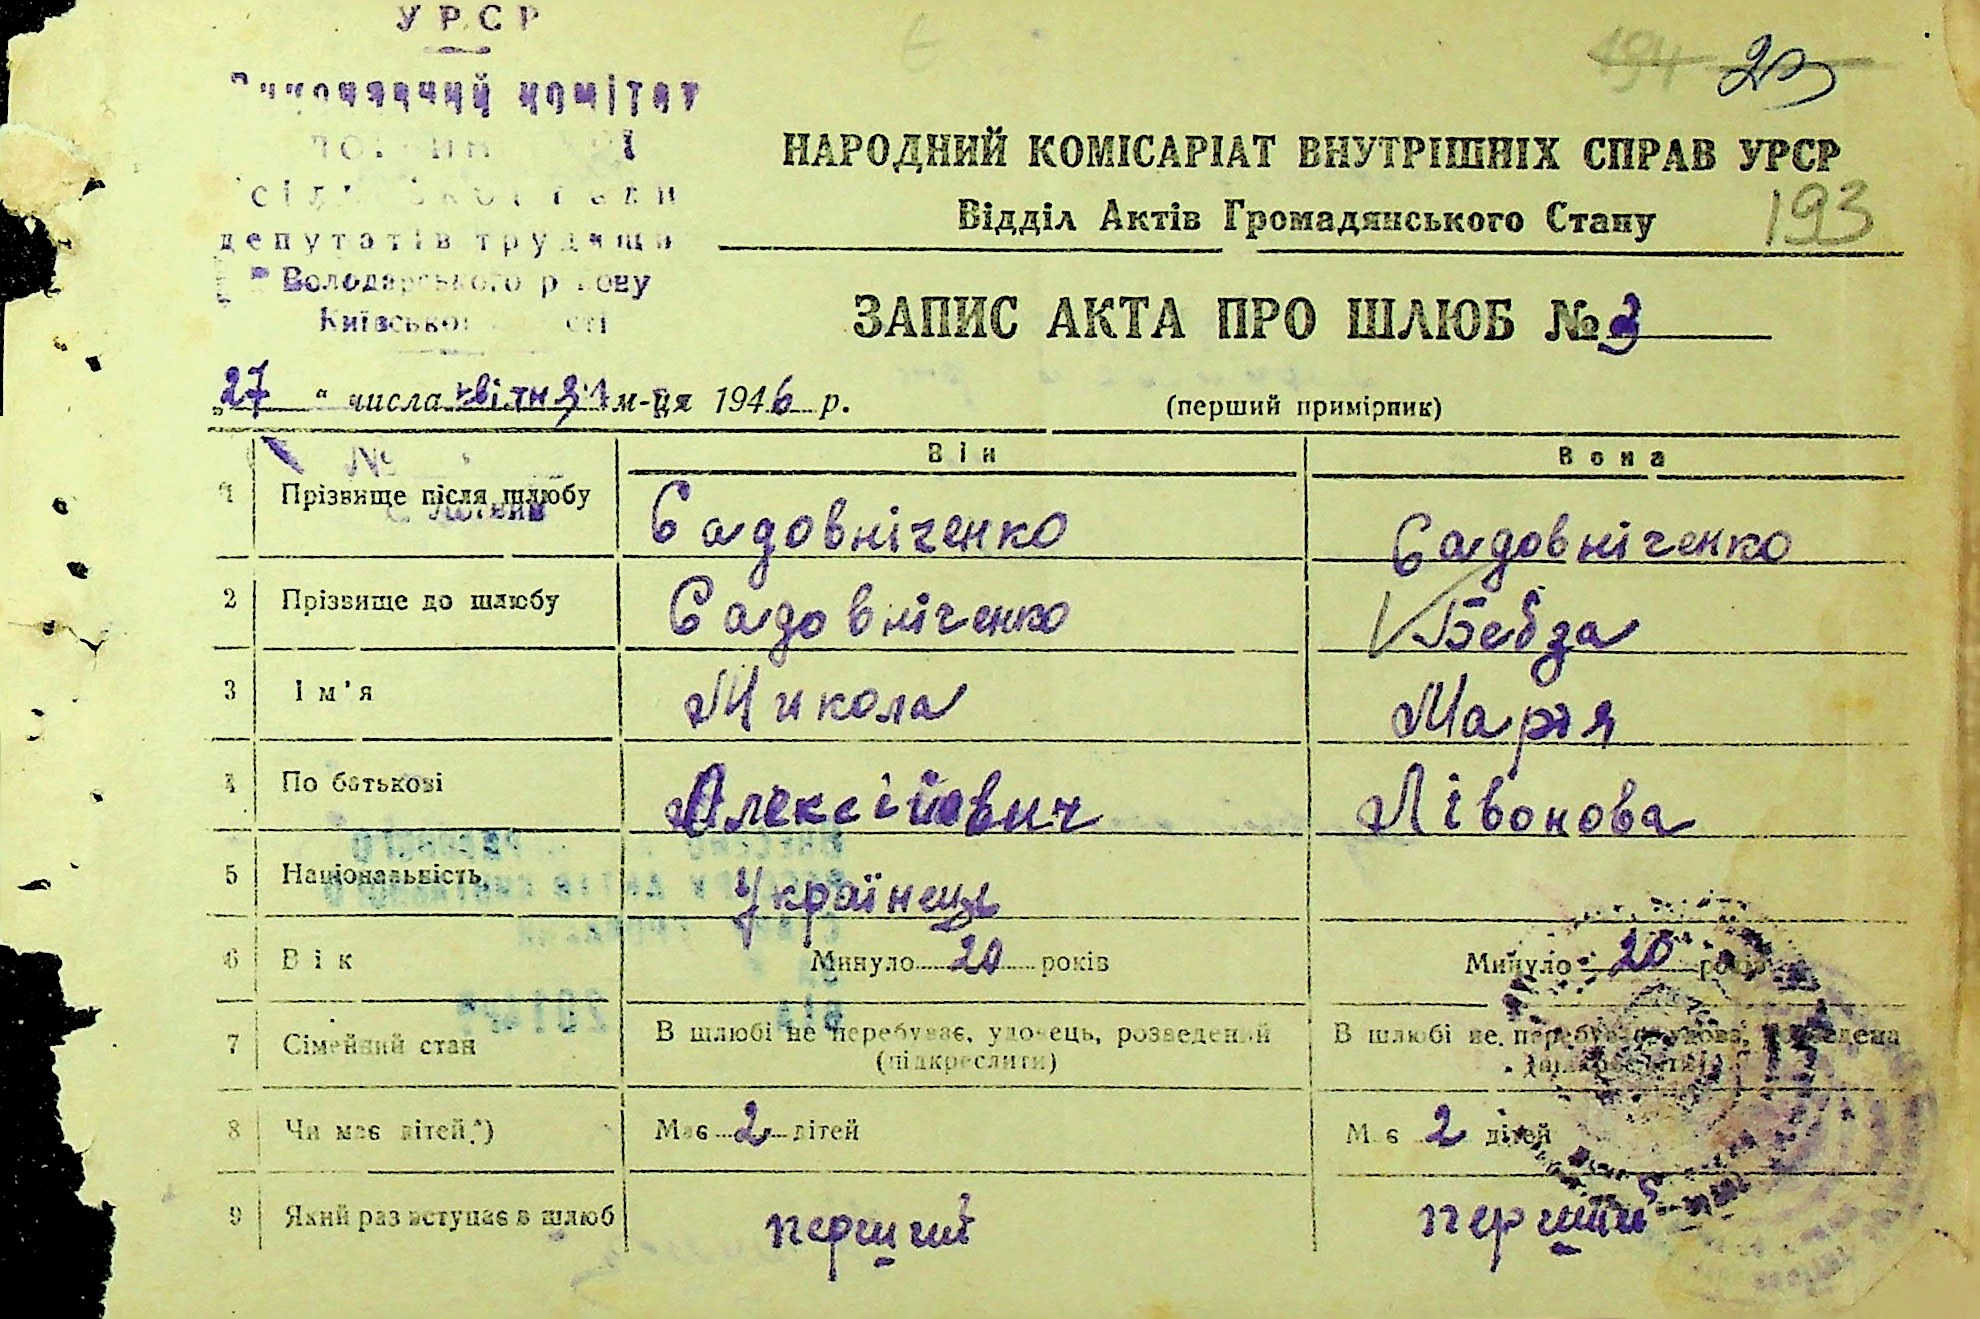 УРСР
Виконавчий комітет
депутатів трудящ
Володарського р
Київської
194 23
НАРОДНИЙ КОМІСАРІАТ ВНУТРІШНІХ СПРАВ УРСР
Відділ Актів Громадянського Стану 193
ЗАПИС АКТА ПРО ШЛЮБ № 3
„27 “ числа квітня м-ця 1946 р. (перший примірник)
Він Вона
№
1 Прізвище після шлюбу Садовніченко Садовніченко
2 Прізвище до шлюбу Садовніченко Бебза
3 Ім'я Микола Марія
4 По батькові Алексійович Лівонова
5 Національність Українець
6 Вік Минуло 20 років Минуло 20 років
7 Сімейний стан В шлюбі не перебуває, удовець, розведений В шлюбі не перебуває, удова, розведена
(підкреслити) (підкреслити)
8 Чи має дітей*) Має 2 дітей Має 2 дітей
9 Який раз вступає в шлюб перший перший